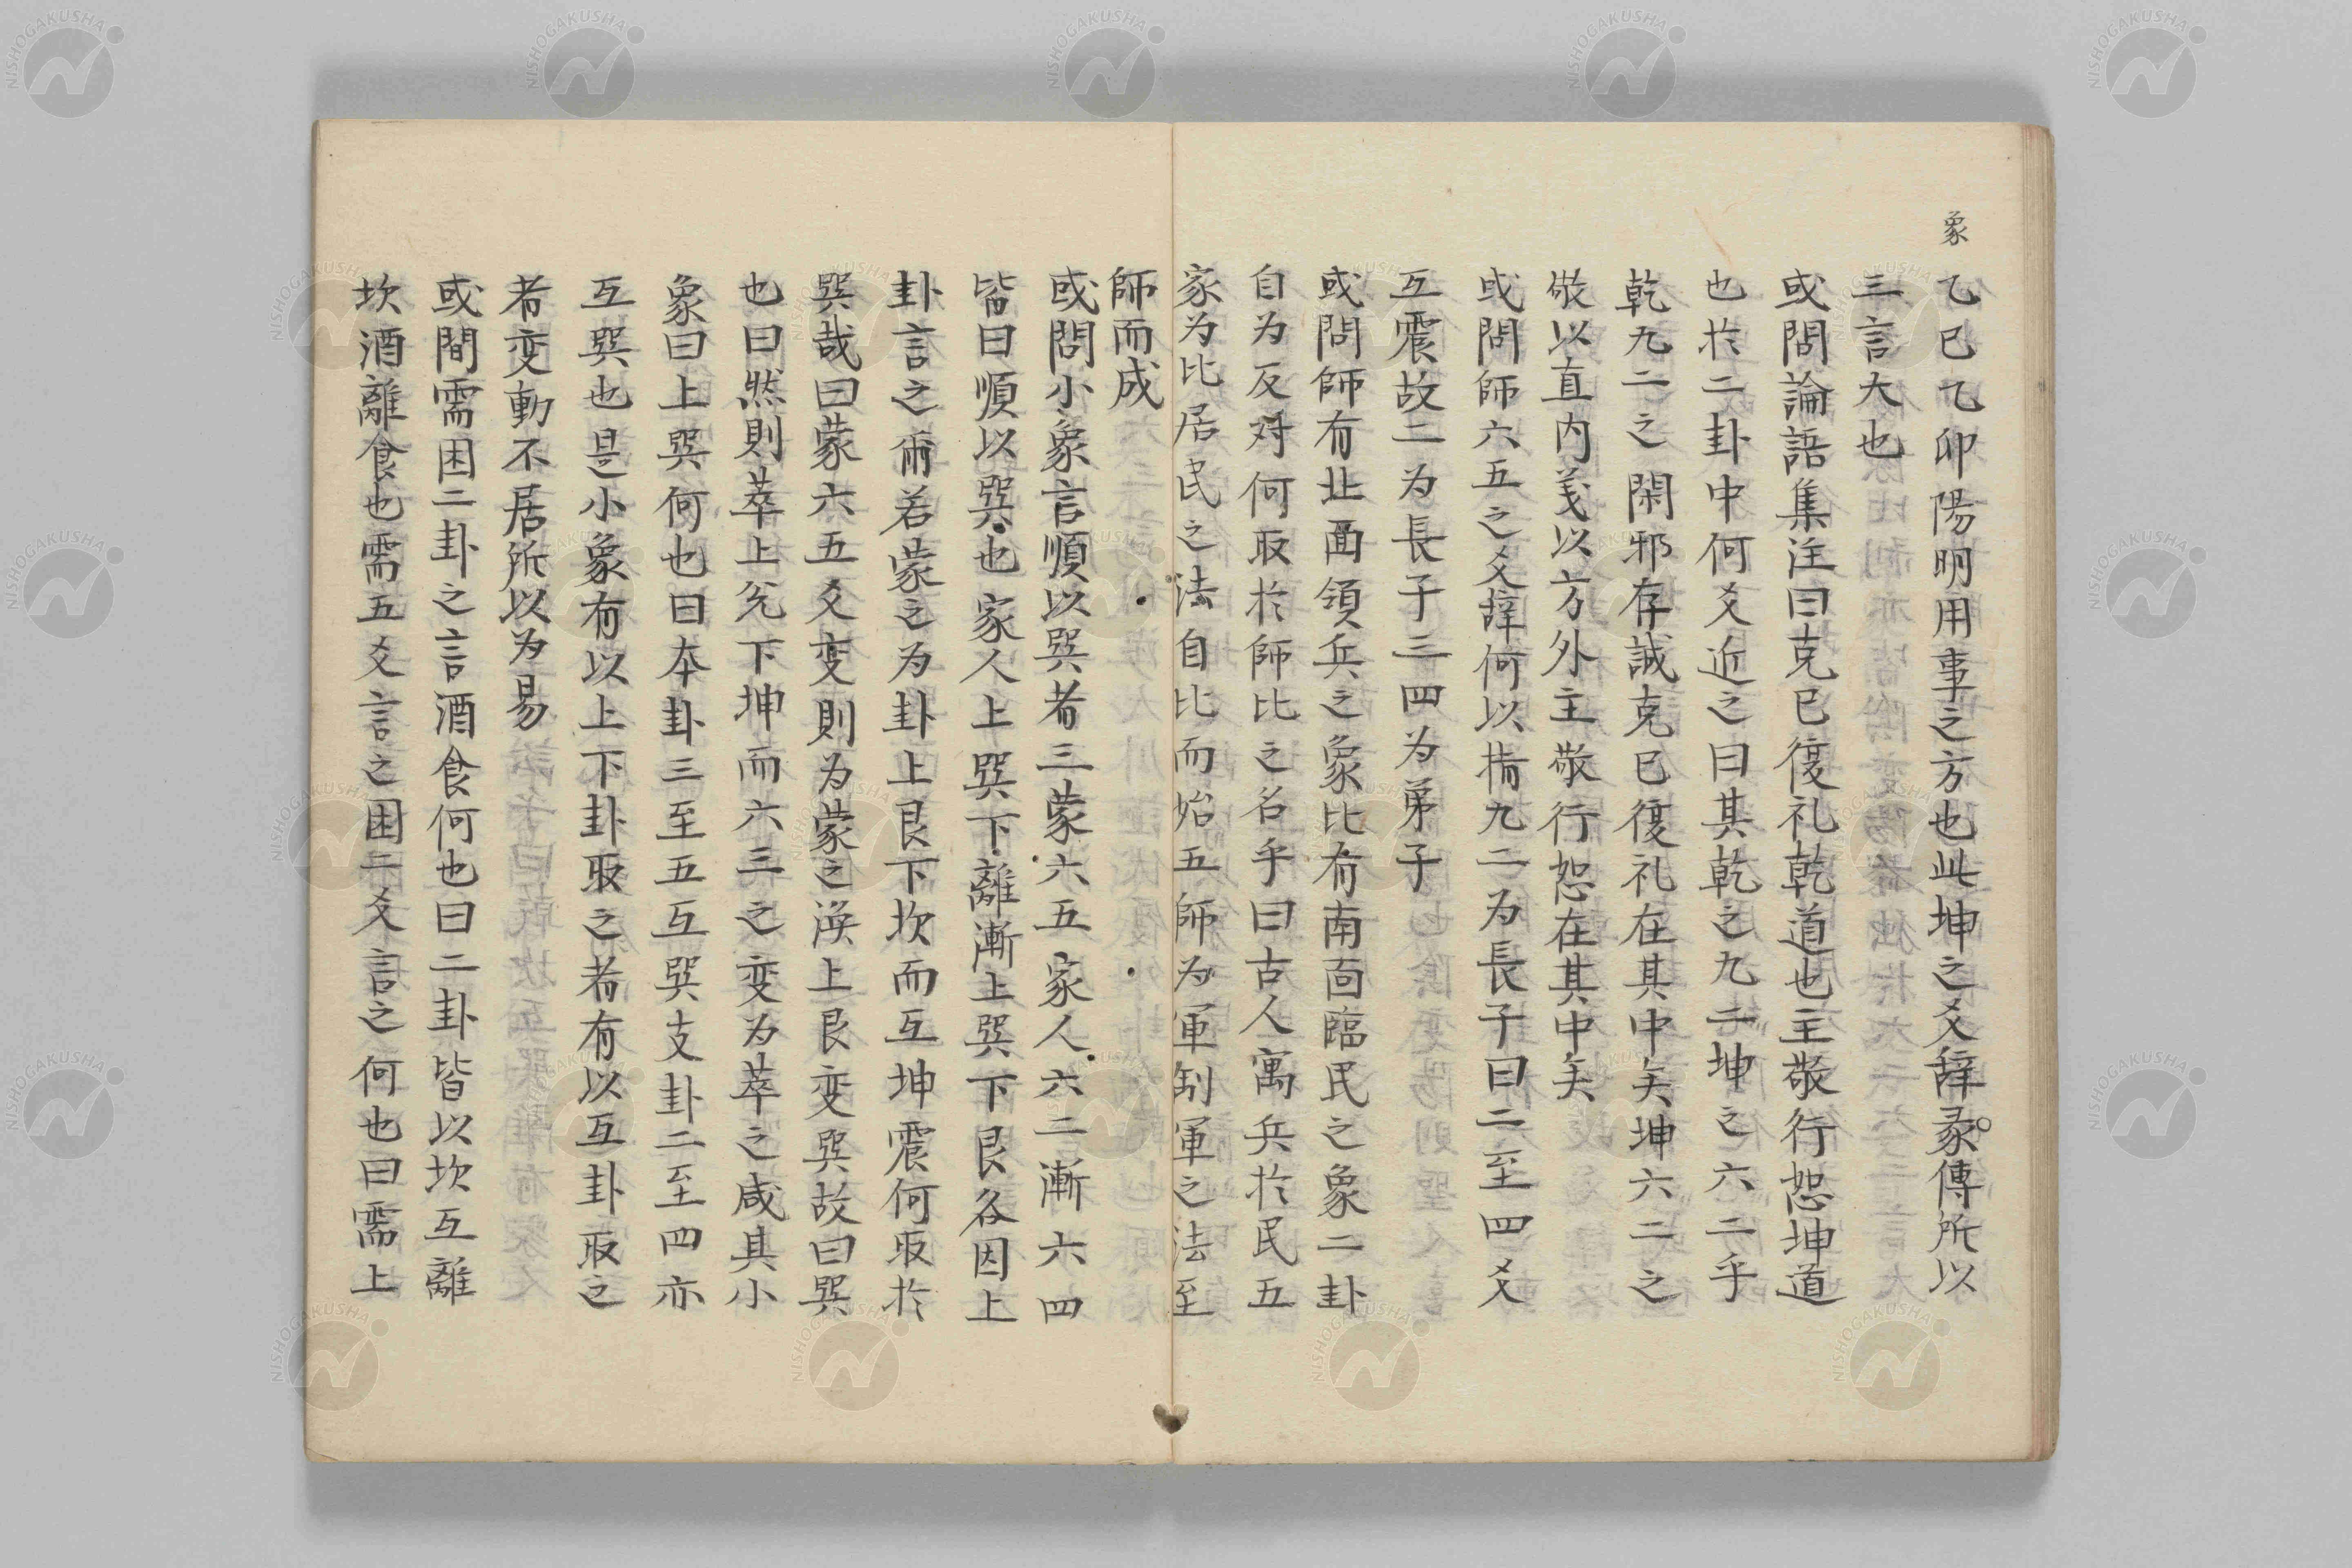 象
乙巳乙卯陽明用事之方也此坤之爻辞彖傳所以
三言大也
或問論語集注曰克已復礼乾道也主敬行恕坤道
也於二卦中何爻近之曰其乾之九二坤之六二乎
乾九二之閑邪存誠克已復礼在其中矣坤六二之
敬以直内義以方外主敬行恕在其中矣
或問師六五之爻辞何以指九二为長子曰二至四爻
互震故二为長子三四为弟子
或問師有北面領兵之象比有南面臨民之象二卦
自为反対何取於師比之名乎曰古人寓兵於民五
家为比居民之法自比而始五師为軍制軍之法至
師而成
或問小象言順以巽者三蒙六五家人六二漸六四
皆曰順以巽也家人上巽下離漸上巽下艮各因上
卦言之爾若蒙之为卦上艮下坎而互坤震何取於
巽哉曰蒙六五爻変則为蒙之渙上艮变巽故曰巽
也曰然則萃上兊下坤而六三之変为萃之咸其小
象曰上巽何也曰本卦三至五互巽支卦二至四亦
互巽也是小象有以上下卦取之者有以互卦取之
者変動不居所以为易
或間需困二卦之言酒食何也曰二卦皆以坎互離
坎酒離食也需五爻言之困二爻言之何也曰需上
NISHOGAKUSHA